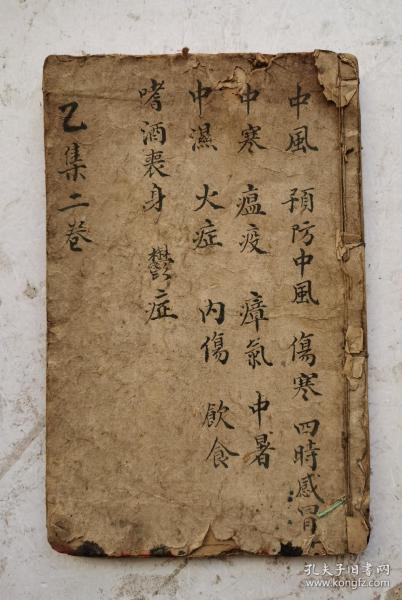 中風 預防中風 傷寒 四時感冒
中寒 瘟疫 瘴氣 中暑
中濕 火症 內傷 飲食
嗜酒喪身 鬱症
乙集二卷
孔夫子旧书网
www.kongfz.com